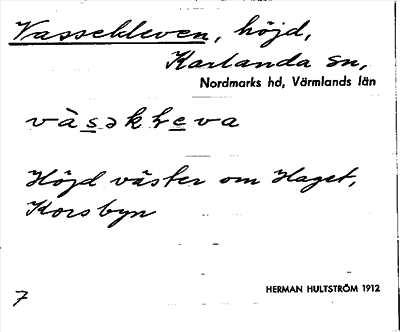 Vassekleven, höjd,
Karlanda sn,
Nordmarks hd, Värmlands län
Höjd väster om Haget,
Korsbyn
7
HERMAN HULTSTRÖM 1912